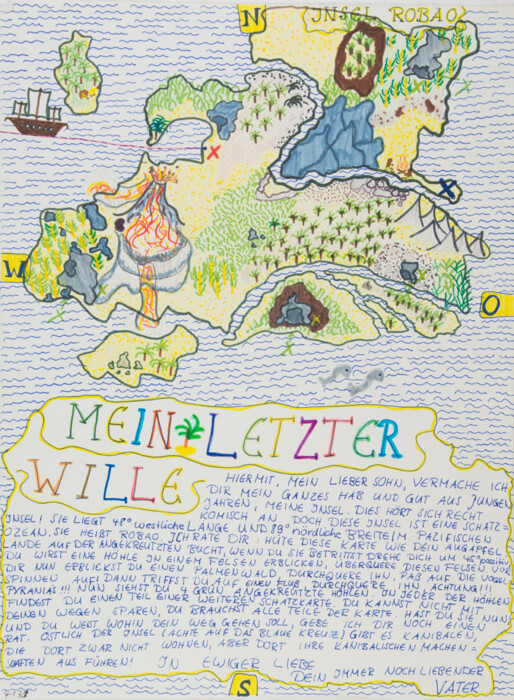 N
INSEL ROBAO
X
X
W
O
MEIN LETZTER
WILLE
HIERMIT, MEIN LIEBER SOHN, VERMACHE ICH
DIR MEIN GANZES HAB UND GUT AUS JUNGEN
JAHREN, MEINE INSEL. DIES HÖRT SICH RECHT
KOMISCH AN - DOCH DIESE INSEL IST EINE SCHATZ=
INSEL! SIE LIEGT 48° westliche LÄNGE UND 89° nördliche BREITE IM PAZIFISCHEN
OZEAN. SIE HEIßT ROBAO. ICH RATE DIR: HÜTE DIESE KARTE WIE DEN AUGAPFEL
LANDE AUF DER ANGEKREUZTEN BUCHT, WENN DU SIE BETRITTST DREHE DICH UM 45° positiv
DU WIRST EINE HÖHLE IN EINEM FELSEN ERBLICKEN, ÜBERQUERE DIESEN FELSEN VOR
DIR NUN ERBLICKST DU EINEN PALMENWALD, DURCHQUERE IHN, PAß AUF DIE VOGEL-
SPINNEN AUF! DANN TRIFFST DU AUF EINEN FLUß, DURCHQUERE IHN ACHTUNG!!!
PYRANIAS!!! NUN SIEHST DU 4 GRÜN ANGEKREUZTE HÖHLEN. IN JEDER DER HÖHLEN
FINDEST DU EINEN TEIL EINER WEITEREN SCHATZKARTE. DU KANNST NICHT MIT
DEINEN WEGEN SPAREN, DU BRAUCHST ALLE TEILE DER KARTE. HAST DU SIE NUN
UND DU WEIßT WOHIN DEIN WEG GEHEN SOLL, GEBE ICH DIR NOCH EINEN
RAT. ÖSTLICH DER INSEL (ACHTE AUF DAS BLAUE KREUZ) GIBT ES KANIBALEN,
DIE DORT ZWAR NICHT WOHNEN, ABER DORT IHRE KANIBALISCHEN MACHEN=
SCHAFTEN AUS FÜHREN! IN EWIGER LIEBE
DEIN IMMER NOCH LIEBENDER
VATER
S